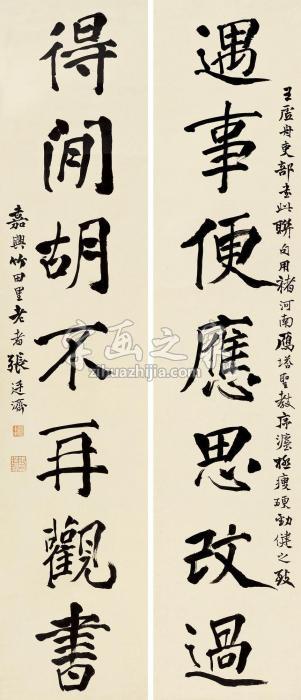 王虛舟吏部书此聯句用褚河南雁塔聖教序法極瘦硬勁健之致
遇事便應思改過
得閒胡不再觀書
嘉興竹田里老者張廷濟
字画之家
zihuazhijia.com